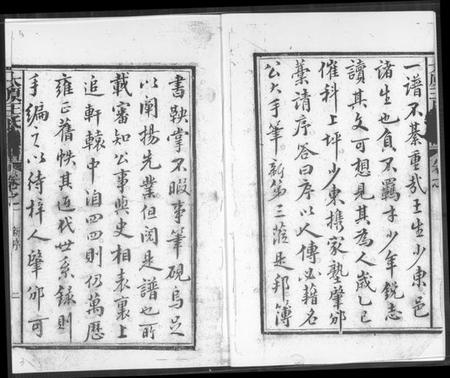 一譜不綦重哉王生少東邑
諸生也負不羈才少年銳志
讀其文可想見其為人歲乙巳
催科上坪少東携家塾肇邠
藁請序答曰序以人傳必藉名
公大手筆新第三蒞是邦簿
書鞅掌不暇事筆硯烏足
以闡揚先業但閱是譜也所
載審知公事與史相表裏上
追軒轅中洎四四則仍萬歷
雍正舊帙其近代世系錄則
手編之以待梓人肇邠可
卷之一
新序
二